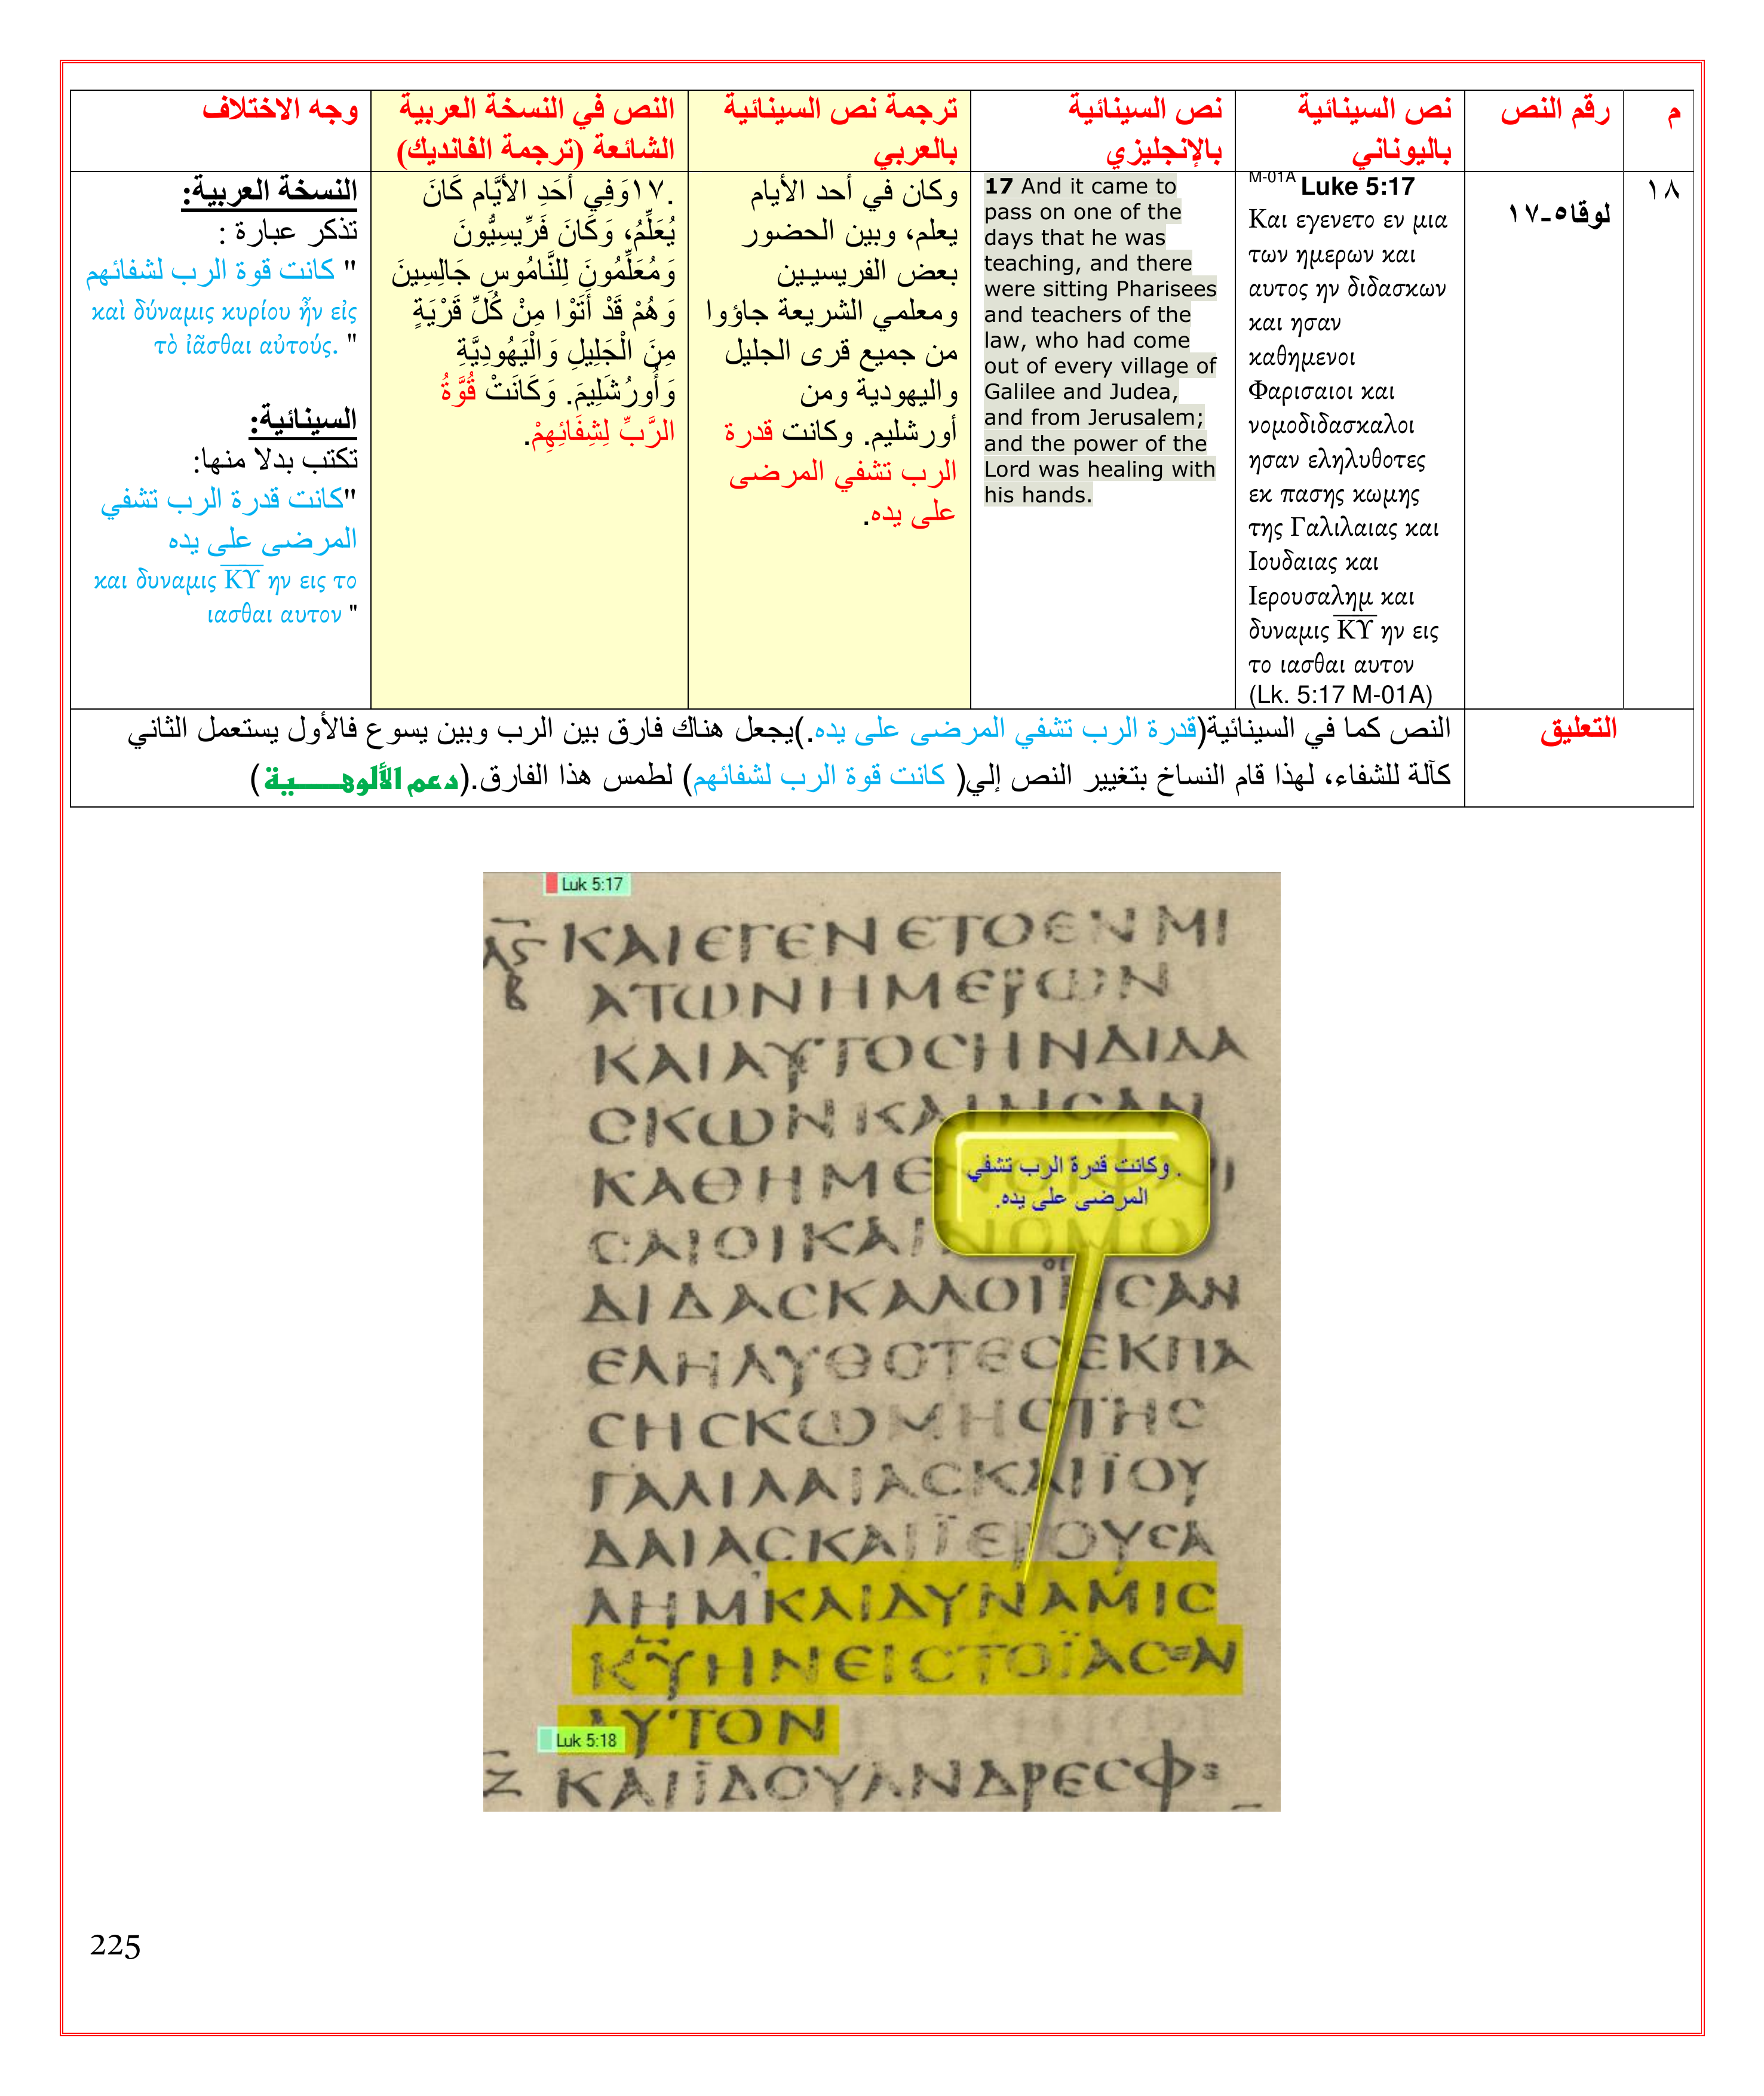 م
رقم النص
نص السينائية
باليوناني
نص السينائية
بالإنجليزي
ترجمة نص السينائية
بالعربي
النص في النسخة العربية
الشائعة (ترجمة الفانديك)
وجه الاختلاف
١٨
لوقا٥-١٧
M-01A Luke 5:17
Και εγενετο εν μια
των ημερων και
αυτος ην διδασκων
και ησαν
καθημενοι
Φαρισαιοι και
νομοδιδασκαλοι
ησαν εληλυθοτες
εκ πασης κωμης
της Γαλιλαιας και
Ιουδαιας και
Ιερουσαλημ και
δυναμις ΚΥ ην εις
το ιασθαι αυτον
(Lk. 5:17 M-01A)
17 And it came to
pass on one of the
days that he was
teaching, and there
were sitting Pharisees
and teachers of the
law, who had come
out of every village of
Galilee and Judea,
and from Jerusalem;
and the power of the
Lord was healing with
his hands.
وكان في أحد الأيام
يعلم، وبين الحضور
بعض الفريسيين
ومعلمي الشريعة جاؤوا
من جميع قرى الجليل
واليهودية ومن
أورشليم. وكانت قدرة
الرب تشفي المرضى
على يده.
.١٧وَفِي أَحَدِ الأَيَّامِ كَانَ
يُعَلِّمُ، وَكَانَ فَرِّيسِيُّونَ
وَمُعَلِّمُونَ لِلنَّامُوسِ جَالِسِينَ
وَهُمْ قَدْ أَتَوْا مِنْ كُلِّ قَرْيَةٍ
مِنَ الْجَلِيلِ وَالْيَهُودِيَّةِ
وَأُورُشَلِيمَ. وَكَانَتْ قُوَّةُ
الرَّبِّ لِشِفَائِهِمْ.
النسخة العربية:
تذكر عبارة :
" كانت قوة الرب لشفائهم
καὶ δύναμις κυρίου ἦν εἰς
τὸ ἰᾶσθαι αὐτούς. "
السينائية:
تكتب بدلا منها:
"كانت قدرة الرب تشفي
المرضى على يده
και δυναμις ΚΥ ην εις το
ιασθαι αυτον "
التعليق
النص كما في السينائية(قدرة الرب تشفي المرضى على يده.)يجعل هناك فارق بين الرب وبين يسوع فالأول يستعمل الثاني
كآلة للشفاء، لهذا قام النساخ بتغيير النص إلي( كانت قوة الرب لشفائهم) لطمس هذا الفارق.(دعم الألوهـــــية)
Luk 5:17
ΚΑΙΕΓΕΝΕΤΟΕΝΜΙ
ΑΤΩΝΗΜΕΡΩΝ
ΚΑΙΑΥΤΟϹΗΝΔΙΔΑ
ϹΚΩΝΚΑΙΗϹΑΝ
. وكانت قدرة الرب تشفي
المرضى على يده.
ΔΙΔΑϹΚΑΛΟΙΗϹΑΝ
ΕΛΗΛΥΘΟΤΕϹΕΚΠΑ
ϹΗϹΚΩΜΗϹΤΗϹ
ΓΑΛΙΛΑΙΑϹΚΑΙΪΟΥ
ΔΑΙΑϹΚΑΙΪΕΡΟΥϹΑ
ΛΗΜΚΑΙΔΥΝΑΜΙϹ
ΚΥΗΝΕΙϹΤΟΪΑϹ
ΑΥΤΟΝ
Luk 5:18
ΚΑΙΪΔΟΥΑΝΔΡΕϹΦ
225